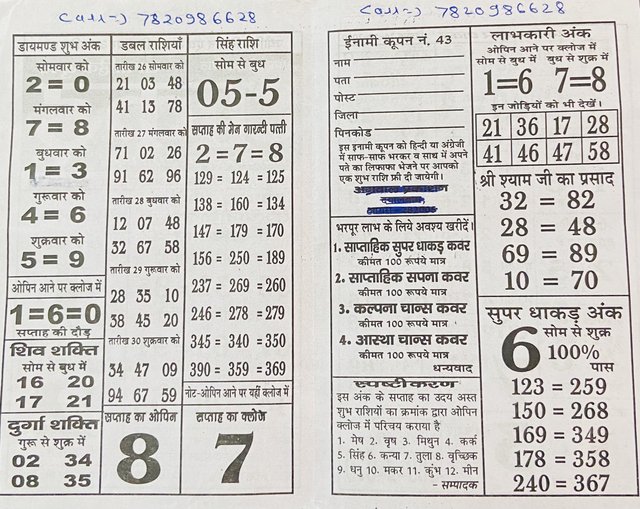 Call=) 7820986628
डायमण्ड शुभ अंक
सोमवार को
2=0
मंगलवार को
7=8
बुधवार को
1=3
गुरूवार को
4=6
शुक्रवार को
5=9
ओपिन आने पर क्लोज में
1=6=0
सप्ताह की दौड़
शिव शक्ति
सोम से बुध में
16 20
17 21
दुर्गा शक्ति
गुरू से शुक्र में
02 34
08 35
डबल राशियाँ
तारीख 26 सोमवार को
21 03 48
41 13 78
तारीख 27 मंगलवार को
71 02 26
91 62 96
तारीख 28 बुधवार को
12 07 48
32 67 58
तारीख 29 गुरूवार को
28 35 10
38 45 20
तारीख 30 शुक्रवार को
34 47 09
94 67 59
सप्ताह का ओपिन
8
सिंह राशि
सोम से बुध
05-5
सप्ताह की मेन गारन्टी पत्ती
2=7=8
129 = 124 = 125
138 = 160 = 134
147 = 179 = 170
156 = 250 = 189
237 = 269 = 260
246 = 278 = 279
345 = 340 = 350
390 = 359 = 369
नोट-ओपिन आने पर यहीं क्लोज में
सप्ताह का क्लोज
7
Call=) 7820986628
ईनामी कूपन नं. 43
नाम
पता
पोस्ट
जिला
पिनकोड
इस इनामी कूपन को हिन्दी या अंग्रेजी
में साफ-साफ भरकर व साथ में अपने
पते का लिफाफा भेजने पर आपको
एक शुभ राशि फ्री दी जायेगी।
भरपूर लाभ के लिये अवश्य खरीदें।
1. साप्ताहिक सुपर धाकड़ कवर
कीमत 100 रूपये मात्र
2. साप्ताहिक सपना कवर
कीमत 100 रूपये मात्र
3. कल्पना चान्स कवर
कीमत 100 रूपये मात्र
4. आस्था चान्स कवर
कीमत 100 रूपये मात्र
धन्यवाद
स्पष्टीकरण
इस अंक के सप्ताह का उदय अस्त
शुभ राशियों का क्रमांक द्वारा ओपिन
क्लोज में परिचय कराया है
1. मेष 2. वृष 3. मिथुन 4. कर्क
5. सिंह 6. कन्या 7. तुला 8. वृच्छिक
9. धनु 10. मकर 11. कुंभ 12. मीन
- सम्पादक
लाभकारी अंक
ओपिन आने पर क्लोज में
सोम से बुध में बुध से शुक्र में
1=6 7=8
इन जोड़ियों को भी देखें।
21 36 17 28
41 46 47 58
श्री श्याम जी का प्रसाद
32 = 82
28 = 48
69 = 89
10 = 70
सुपर धाकड़ अंक
6
सोम से शुक्र
100%
पास
123 = 259
150 = 268
169 = 349
178 = 358
240 = 367